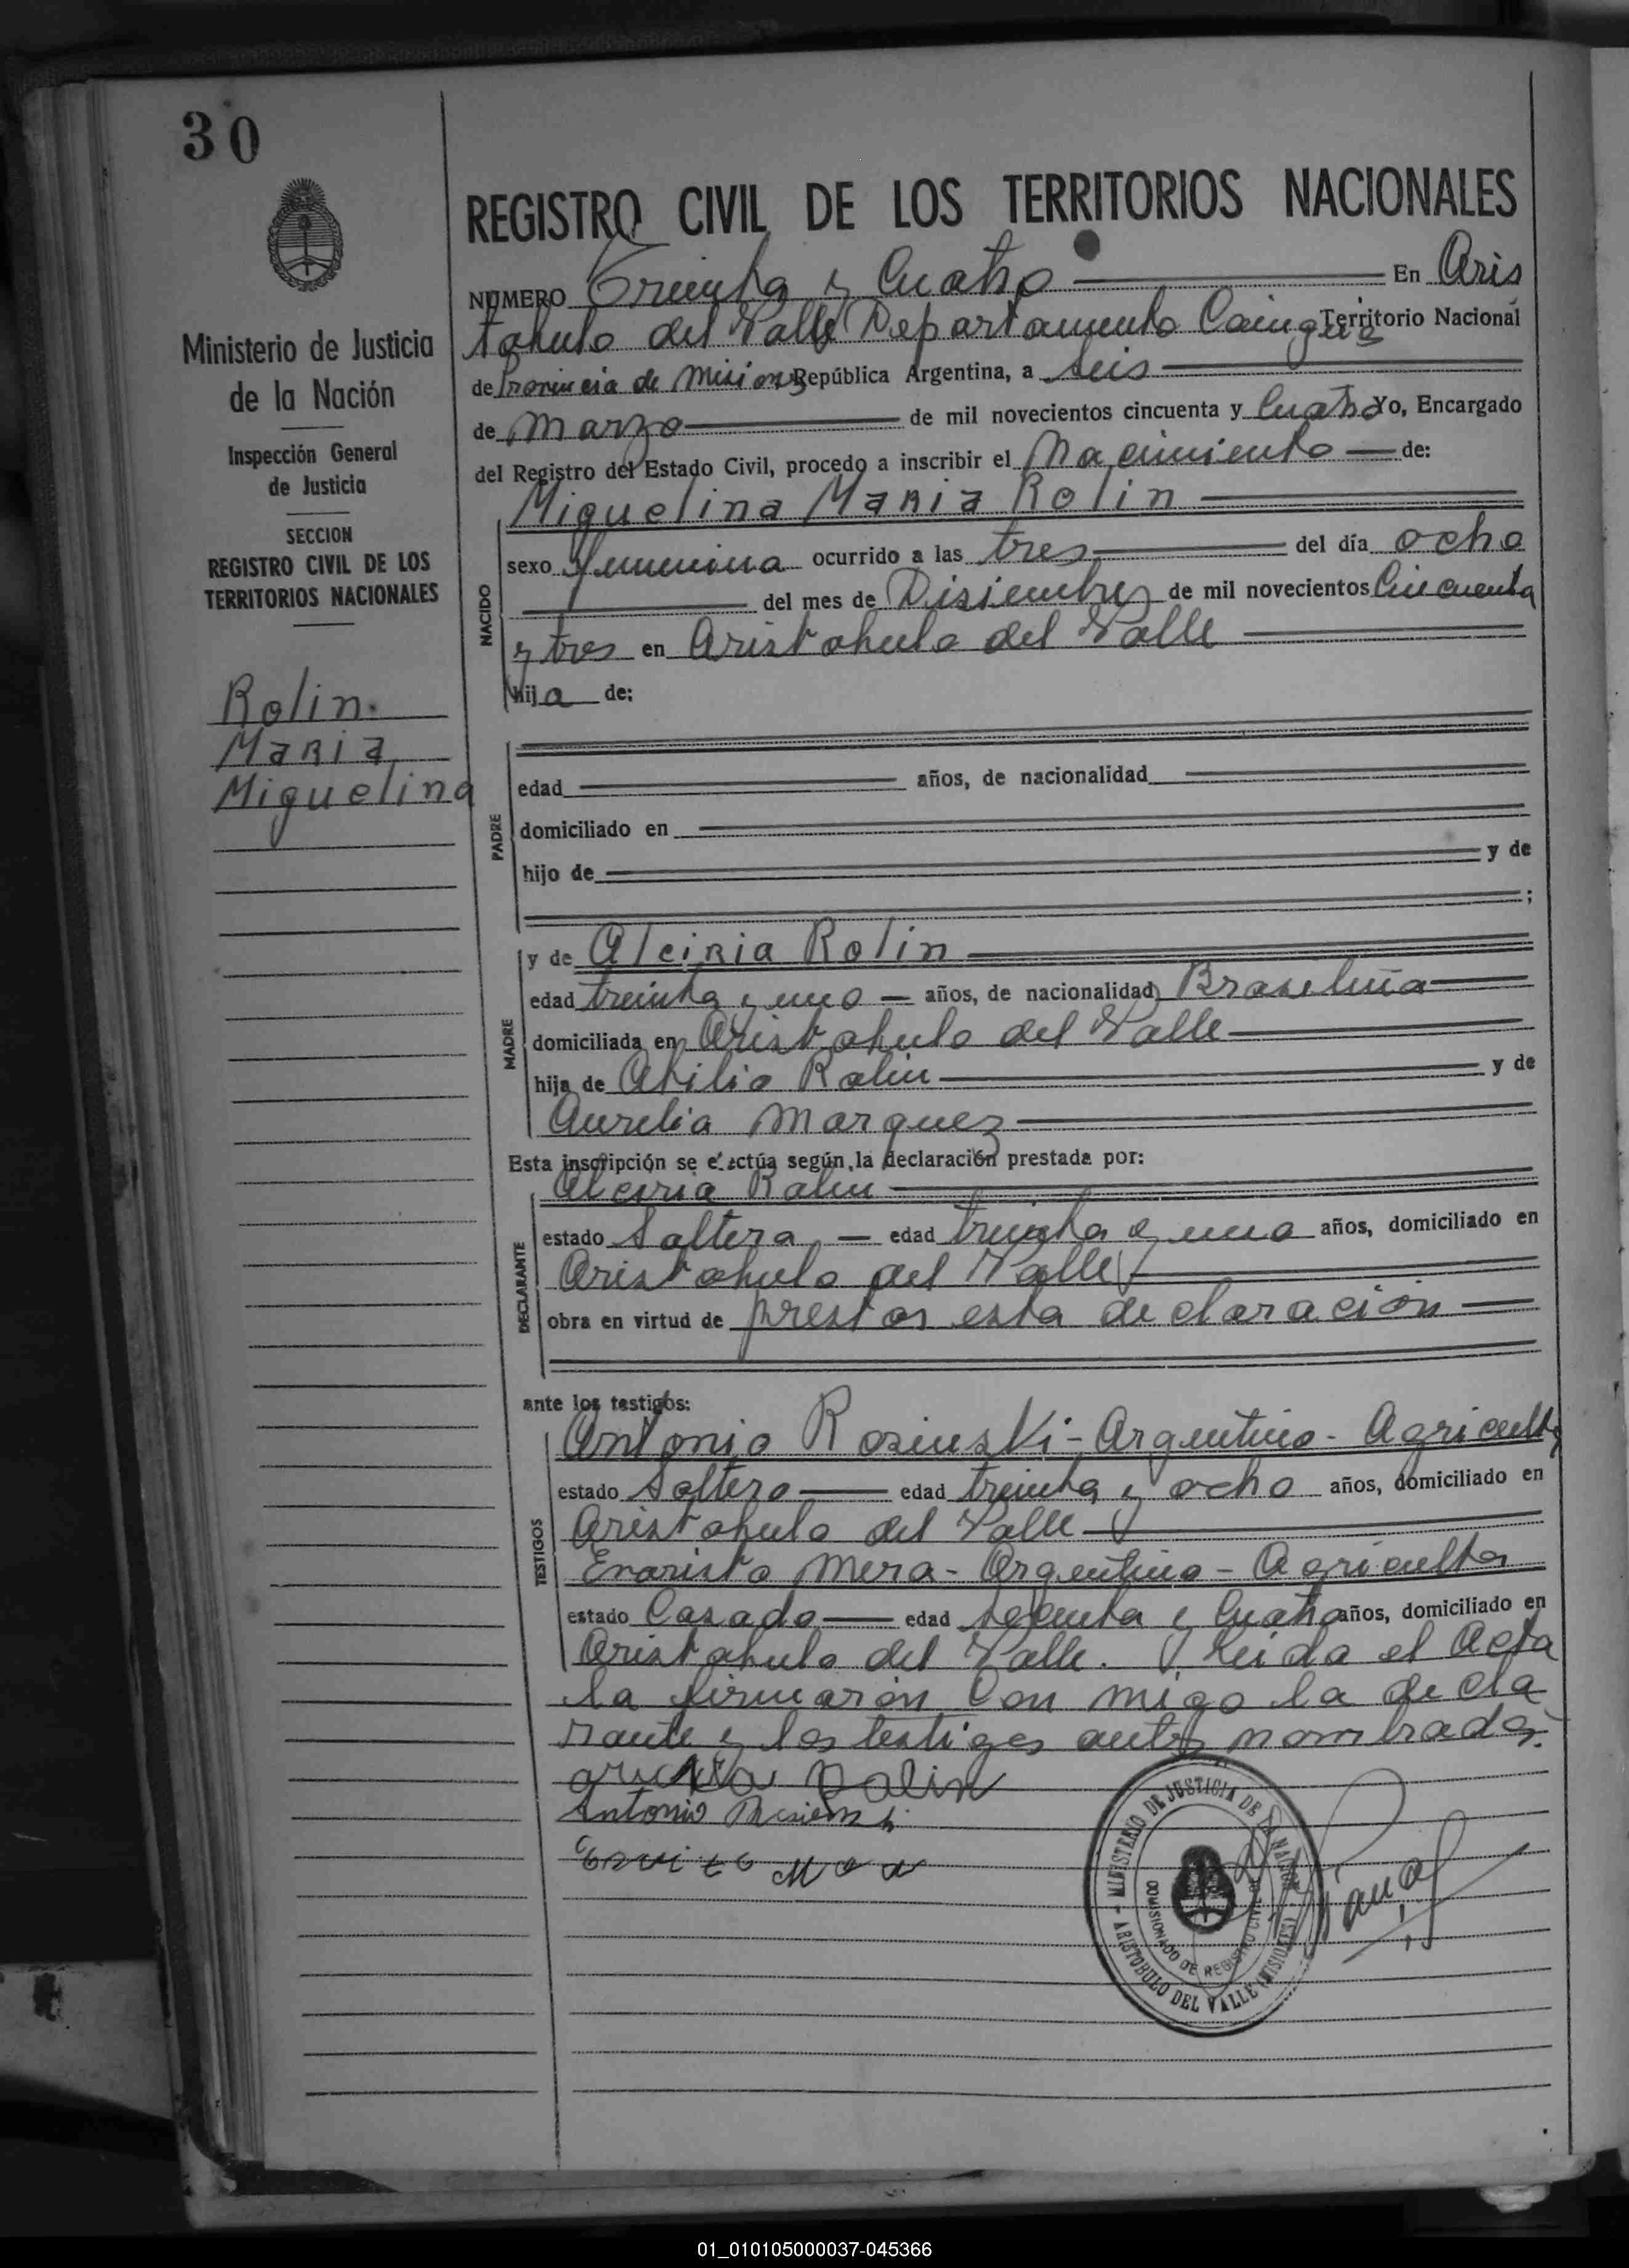 30
REGISTRO CIVIL DE LOS TERRITORIOS NACIONALES
NUMERO Treinta y Cuatro En Aris
tobulo del Valle Departamento Cainguas Territorio Nacional
de Provincia de Misiones República Argentina, a Seis
de Marzo de mil novecientos cincuenta y Cuatro Yo, Encargado
del Registro del Estado Civil, procedo a inscribir el Nacimiento de:
Miguelina Maria Rolin
sexo Femenina ocurrido a las tres del día ocho
del mes de Disiembre de mil novecientos Cincuenta
y tres en Aristobulo del Valle
hija de:
NACIDO
Ministerio de Justicia
de la Nación
Inspección General
de Justicia
SECCION
REGISTRO CIVIL DE LOS
TERRITORIOS NACIONALES
Rolin.
Maria
Miguelina
PADRE
edad años, de nacionalidad
domiciliado en
hijo de y de
;
MADRE
y de Alciria Rolin
edad treinta y uno años, de nacionalidad Brasileña
domiciliada en Aristobulo del Valle
hija de Atilio Rolin y de
Aurelia Marquez
Esta inscripción se efectúa según la declaración prestada por:
DECLARANTE
Alciria Rolin
estado Soltera edad treinta y uno años, domiciliado en
Aristobulo del Valle
obra en virtud de prestar esta declaración
ante los testigos:
TESTIGOS
Antonio Rosinski - Argentino - Agricultor
estado Soltero edad treinta y ocho años, domiciliado en
Aristobulo del Valle
Evaristo Mera - Argentino - Agricultor
estado Casado edad y Cuatro años, domiciliado en
Aristobulo del Valle. Leida el Acta
la firmaron Con migo la decla
rante y los testigos antes nombrados.
Rolin
Antonio
MINISTERIO DE JUSTICIA DE LA NACION
COMISIONADO DE REGISTRO CIVIL
ARISTOBULO DEL VALLE (MISIONES)
01_010105000037-045366